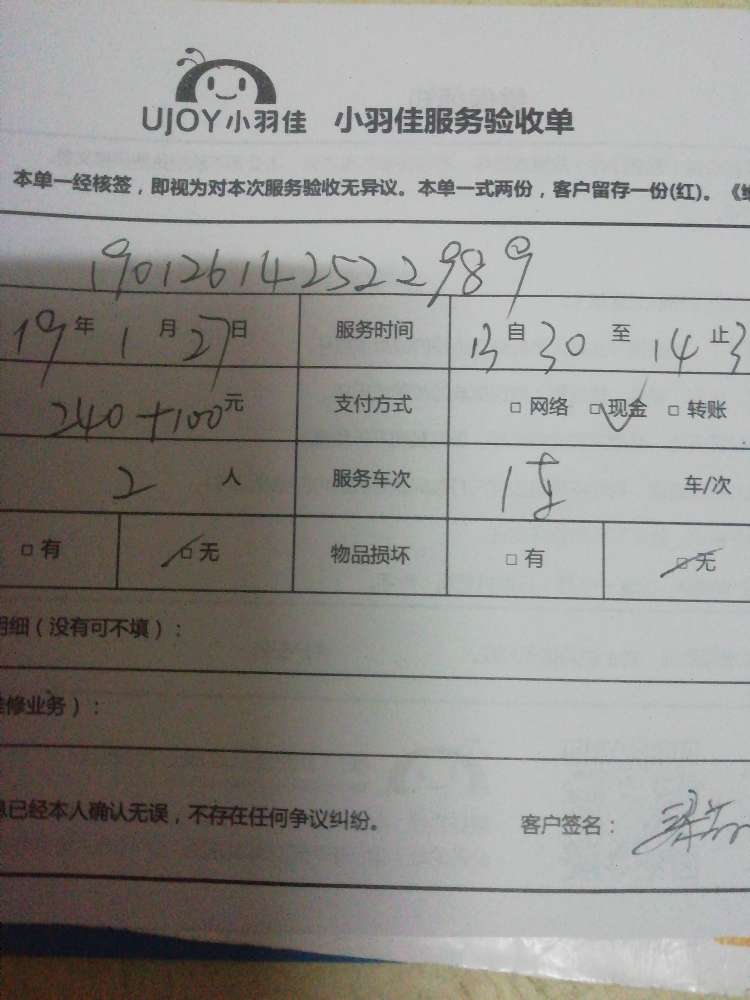 UJOY小羽佳 小羽佳服务验收单
本单一经核签，即视为对本次服务验收无异议。本单一式两份，客户留存一份(红)。《
190126142522989
19年1月27日 服务时间 13自30至14止3
240+100元 支付方式 □网络 □现金 □转账
2人 服务车次 1 车/次
□有 □无 物品损坏 □有 □无
明细（没有可不填）：
修业务）：
已经本人确认无误，不存在任何争议纠纷。 客户签名：